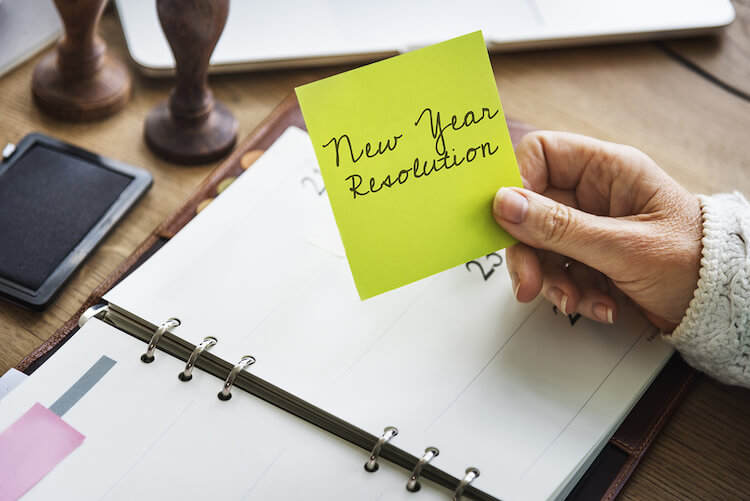 New Year
Resolution